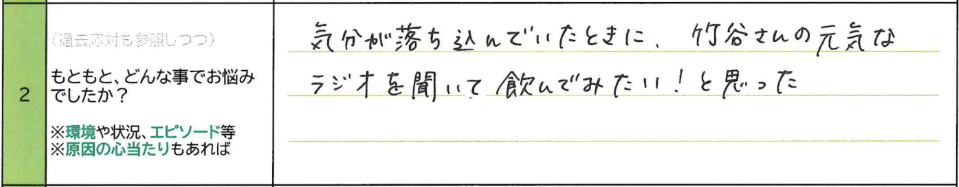 2
（過去応対も参照しつつ）
もともと、どんな事でお悩み
でしたか？
※環境や状況、エピソード等
※原因の心当たりもあれば
気分が落ち込んでいたときに、竹谷さんの元気な
ラジオを聞いて飲んでみたい！と思った